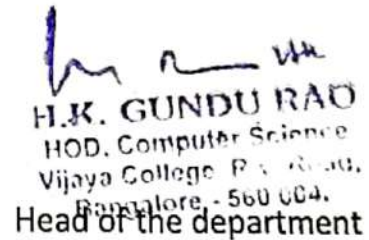 H.K. GUNDU RAO
HOD. Computer Science
Vijaya College
Bangalore. - 560 004.
Head of the department